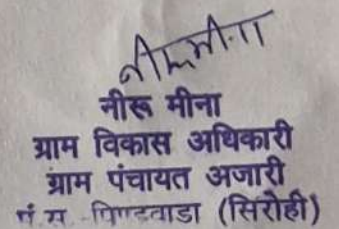 नीरू मीना
नीरू मीना
ग्राम विकास अधिकारी
ग्राम पंचायत अजारी
पं.स. पिण्डवाडा (सिरोही)